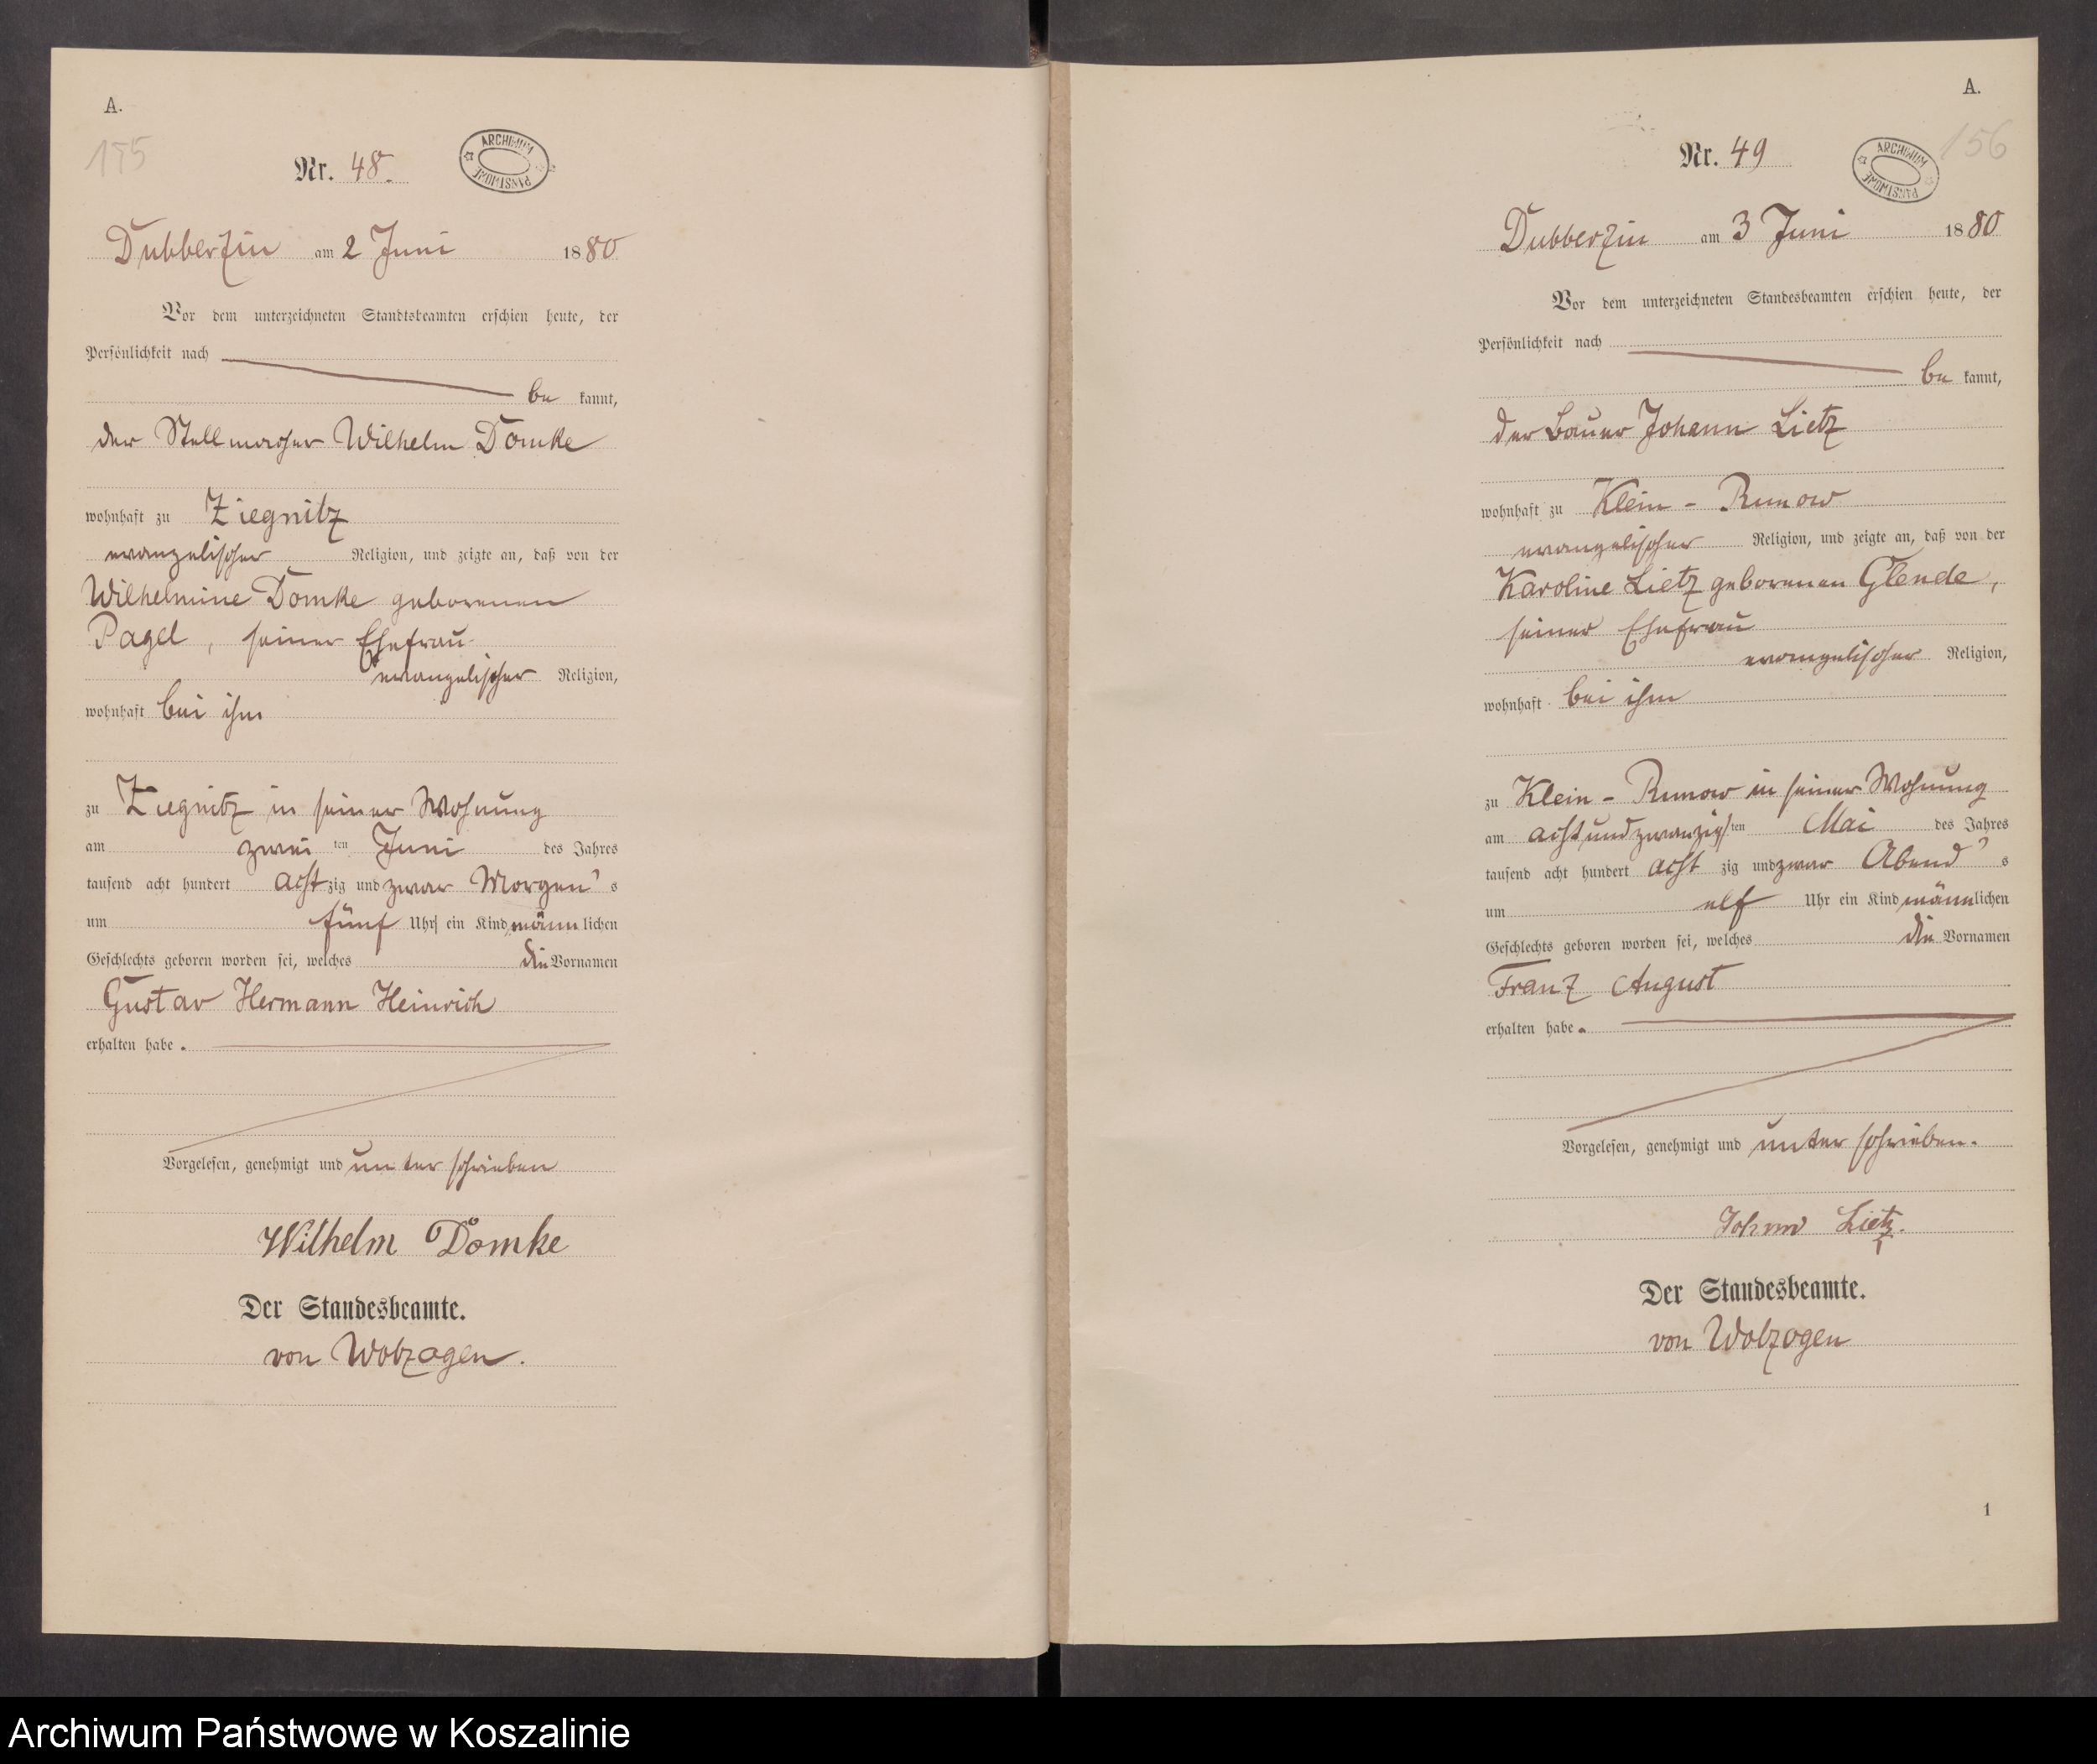 A.
155
Nr. 48.
ARCHIWUM PAŃSTWOWE
Dubberzin am 2 Juni 1880
Vor dem unterzeichneten Standtsbeamten erschien heute, der
Persönlichkeit nach
be kannt,
der Stellmacher Wilhelm Domke
wohnhaft zu Ziegnitz
evangelischer Religion, und zeigte an, daß von der
Wilhelmine Domke geborenen
Pagel, seiner Ehefrau
evangelischer Religion,
wohnhaft bei ihm
zu Ziegnitz in seiner Wohnung
am zwei ten Juni des Jahres
tausend acht hundert acht zig und zwar Morgen's
um fünf Uhr ein Kind männ lichen
Geschlechts geboren worden sei, welches die Vornamen
Gustav Hermann Heinrich
erhalten habe.
Vorgelesen, genehmigt und unterschrieben
Wilhelm Domke
Der Standesbeamte.
von Wolzogen.
A.
156
Nr. 49
ARCHIWUM PAŃSTWOWE
Dubberzin am 3 Juni 1880
Vor dem unterzeichneten Standesbeamten erschien heute, der
Persönlichkeit nach
be kannt,
der Bauer Johann Lietz
wohnhaft zu Klein - Runow
evangelischer Religion, und zeigte an, daß von der
Karoline Lietz geborenen Glende,
seiner Ehefrau
evangelischer Religion,
wohnhaft bei ihm
zu Klein - Runow in seiner Wohnung
am achtundzwanzigsten Mai des Jahres
tausend acht hundert acht zig und zwar Abend's
um elf Uhr ein Kind männlichen
Geschlechts geboren worden sei, welches die Vornamen
Franz August
erhalten habe.
Vorgelesen, genehmigt und unterschrieben.
Johann Lietz.
Der Standesbeamte.
von Wolzogen
1
Archiwum Państwowe w Koszalinie